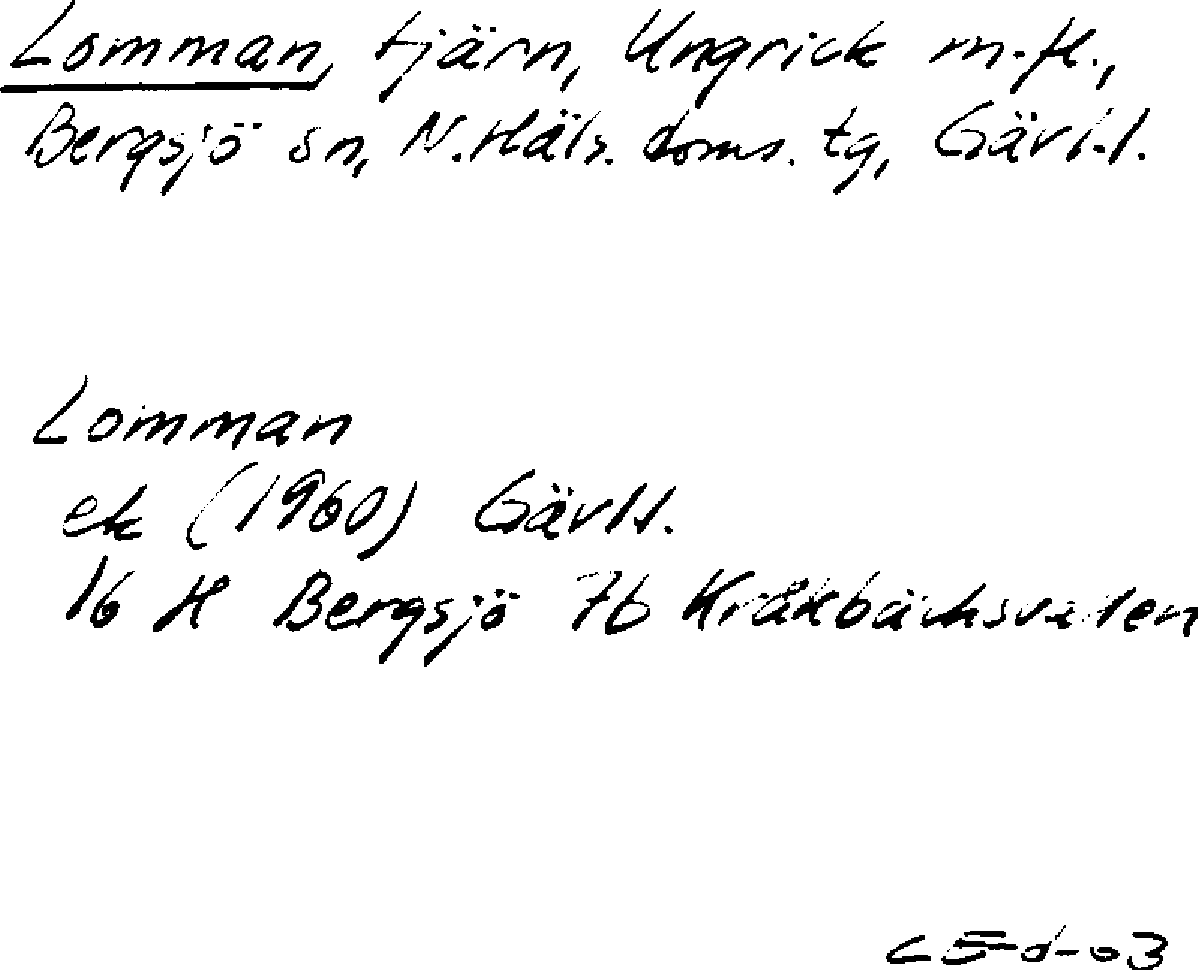 Lomman, tjärn, Ungrick m.fl.,
Bergsjö sn, N.Häls. doms. tg, Gävl.l.
Lomman
ek (1960) Gävl.l.
16 H Bergsjö 7b Kråkbäcksvallen